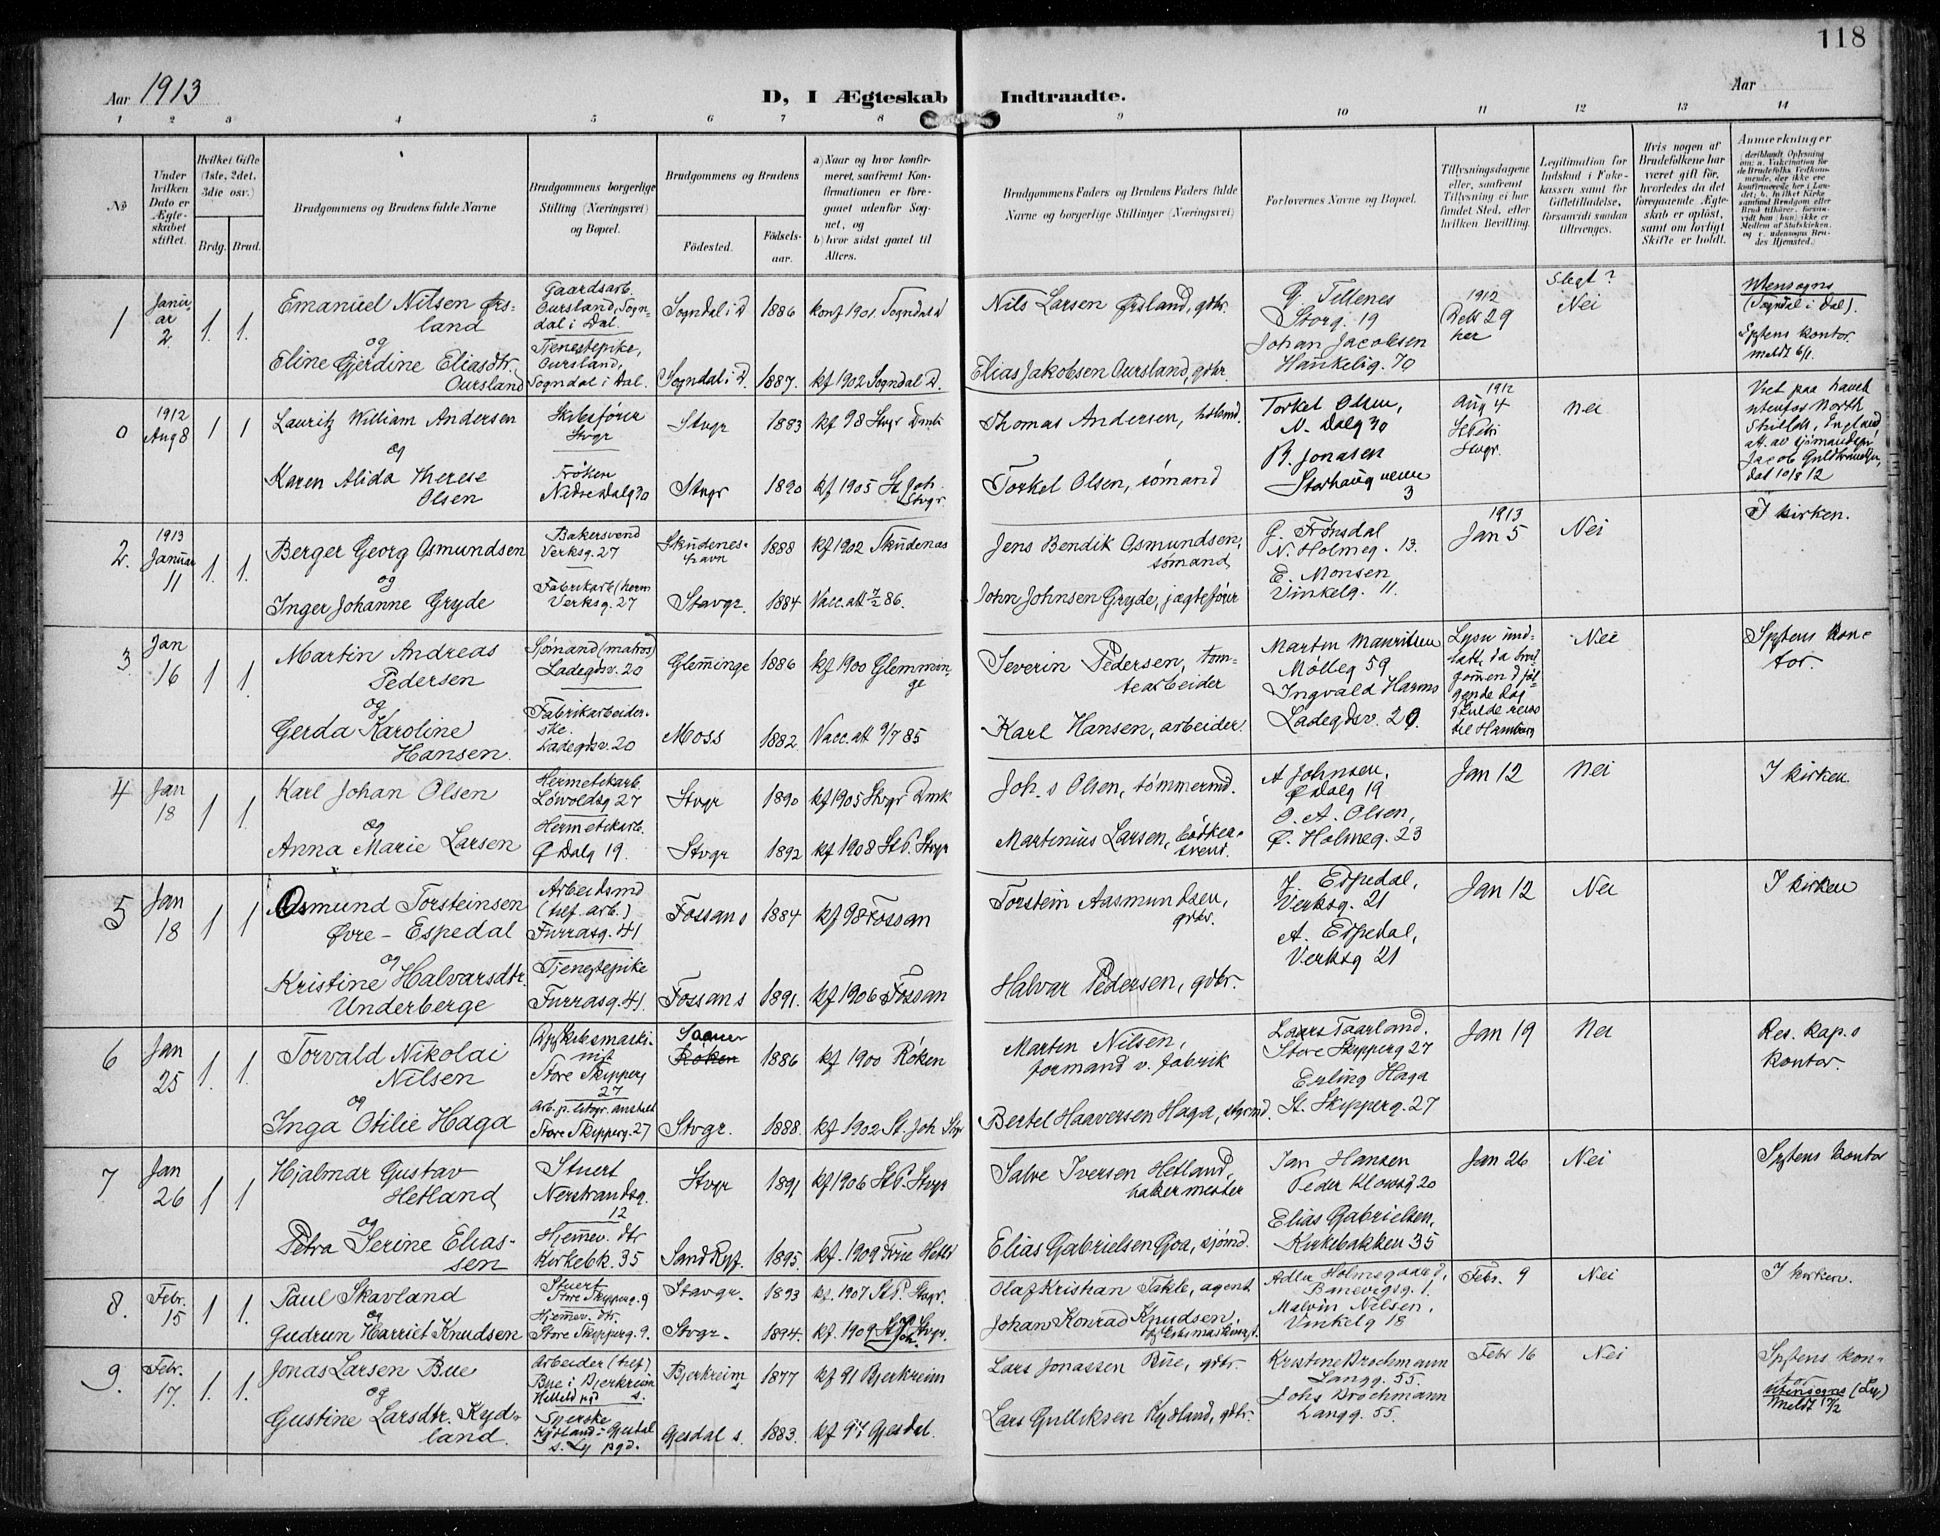 118
Aar 1913
D, I Ægteskab Indtraadte.
Aar
1 2 3 4 5 6 7 8 9 10 11 12 13 14
No
Under hvilken Dato er Ægteskabet stiftet.
Hvilket Gifte (1ste, 2det, 3die osv.)
Brdg. Brud.
Brudgommens og Brudens fulde Navne
Brudgommens borgerlige Stilling (Næringsvei) og Bopæl.
Brudgommens og Brudens
Fødested.
Fødselsaar.
a) Naar og hvor konfirmeret, saafremt Konfirmationen er foregaaet udenfor Sognet, og b) hvor sidst gaaet til Alters.
Brudgommens Faders og Brudens Faders fulde Navne og borgerlige Stillinger (Næringsvei)
Forlovernes Navne og Bopæl.
Tillysningsdagene eller, saafremt Tillysning ei har fundet Sted, efter hvilken Bevilling.
Legitimation for Indskud i Enkekassen samt for Giftetilladelse, forsaavidt saadan tiltrænges.
Hvis nogen af Brudefolkene har været gift før, hvorledes da det foregaaende Ægteskab er opløst, samt om lovligt Skifte er holdt.
Anmærkninger
1 Januar 2 1. 1.
Emanuel Nilsen Ørsland
og
Eline Gjerdine Eliasdtr. Oursland
Gaardsarb. Oursland, Sogndal i Dal.
Tjenestepike, Oursland, Sogndal i Dal.
Sogndal i D 1886 konf 1901 Sogndal d
Sogndal i D. 1887. kf 1902 Sogndal D.
Nils Larsen Ørsland, gdbr.
Elias Jakobsen Oursland, gdbr.
G. Tellenes
Storg. 19
Johan Jacobsen
Haukelig. 70
1912
Decb 29
her
Slegt?
Nei
Utensogns
(Sogndal i Dal).
Sptens kontor
meldt 6/1.
0 1912 Aug 8 1 1
Lauritz William Andersen
og
Karen Alida Therese Olsen
Skibsfører
Stvgr
Frøken
Nedre Dalg 30
Stvgr 1883 kf 98 Stvgr Dmk
Stvgr 1890 kf 1905 St Joh. Stvgr
Thomas Andersen,
Torkel Olsen, sømand
Torkel Olsen,
N. Dalg 30
B. Jonasen
Storhaug veien 3
1912
Aug 4
St Petri
Stvgr.
Nei
Viet paa havet
utenfor North
Shields, England,
att. av sjømandspr
Jacob Guldbrandsen,
dat 10/8 12
2. 1913 Januar 11 1. 1.
Berger Georg Osmundsen
og
Inger Johanne Gryde
Bakersvend
Verksg. 27
Fabrikarb (herm
Verksg. 27
Skudeneshavn 1888 kf 1902 Skudenes
Stavgr. 1884 Vacc. att 7/2 86.
Jens Bendik Osmundsen, sømand
John Johnsen Gryde, jægtefører
G. Frønsdal
N. Holmeg. 13.
E. Monsen
Vinkelg. 11.
1913
Jan 5
Nei
I kirken.
3. Jan 16 1 1
Martin Andreas Pedersen
og
Gerda Karoline Hansen.
Sjømand (matros)
Ladegdsv. 20
Fabrikarbeiderske.
Ladegdsv. 20
Glemminge 1886 kf 1900 Glemminge
Moss 1882. Vacc. att 9/7 85
Severin Pedersen, tomtearbeider
Karl Hansen, arbeider
Marten Mauritsen
Mølleg 59
Ingvald Harms
Ladegdsv. 20.
Lysn undlatt, da brudgommen d følgende dag skulde reise til Hamburg
Nei
Sptens kontor.
4 Jan 18 1 1.
Karl Johan Olsen
og
Anna Marie Larsen
Hermetikarb.
Løvoldsg 27
Hermetikarb.
Ø Dalg 19.
Stvgr 1890 kf 1905 Stvgr Dmk
Stvgr 1892 kf 1908 St P. Stvgr
Joh.s Olsen, tømmermd.
Martinius Larsen, bødkersvend.
A Johnsen,
Ø Dalg 19
O. A. Olsen,
Ø. Holmeg. 23
Jan 12
Nei
I kirken.
5 Jan 18 1 1
Osmund Torsteinsen Øvre-Espedal
og
Kristine Halvarsdtr. Underberge
Arbeidsmd
(tilf. arb.)
Furrasg. 41
Tjenestepike
Furrasg. 41.
Fossan s 1884 kf 98 Fossan
Fossan s 1891. kf 1906 Fossan
Torstein Aasmundsen, gdbr.
Halvar Pedersen, gdbr.
J. Espedal,
Verksg. 21
A. Espedal,
Verksg 21
Jan 12
Nei
I kirken
6 Jan 25 1. 1.
Torvald Nikolai Nilsen
og
Inga Otilie Haga
Dpskibsmaskinist
Store Skipperg 27
Store Skipperg. 27
Røken 1886 kf 1900 Røken
Stvgr. 1888. kf 1902 St. Joh Stvgr
Marten Nilsen,
formand v. fabrik
Bertel Haaversen Haga, styrmd.
Lars Taarland.
Store Skipperg 27
Erling Haga
St. Skipperg. 27
Jan 19
Nei
Res. kap.s
kontor.
7 Jan 26 1 1
Hjalmar Gustav Hetland
og
Petra Serine Eliassen
Stuert
Nerstrandsg. 12
Hjemmev. dtr
Kirkebk. 35
Stvgr 1891 kf 1906 St P. Stvgr
Sand Ryf. 1895. kf. 1909 Frue Hetl
Salve Iversen Hetland, bakermester
Elias Gabrielsen Goa, sjømd.
Jan Hansen
Peder Klowsg 20
Elias Gabrielsen,
Kirkebakken 35
Jan 26
Nei
Sptens kontor
8. Febr. 15 1 1
Paul Skavland
og
Gudrun Harriet Knudsen
Stuert
Store Skipperg. 9
Hjemmev. dtr.
Store Skipperg. 9.
Stavgr. 1893 kf. 1907 St P. Stvgr.
Stvgr. 1894. kf. 1909 St Joh. Stvgr.
Olaf Kristian Takle, agent
Johan Konrad Knudsen,
Adler Holmegaard,
Banevigsg. 1.
Malvin Nilsen,
Vinkelg 18
Febr. 9
Nei
I kirken.
9. Febr. 17. 1. 1.
Jonas Larsen Bue
og
Gustine Larsdtr. Kydland.
Arbeider (tilf)
Bue i Bjerkreim s.
Syerske
Kydland - Gjesdal
s. Ly pgd.
Bjerkreim s 1877 kf 91 Bjerkreim
Gjesdal s. 1883. kf 97 Gjesdal.
Lars Jonassen Bue, gdbr.
Lars Gulliksen Kydland, gdbr.
Kristine Brochmann
Langg. 55.
Johs Brochmann
Langg. 55.
Febr 16
Nei
Sptens kontor
utensogns (Ly)